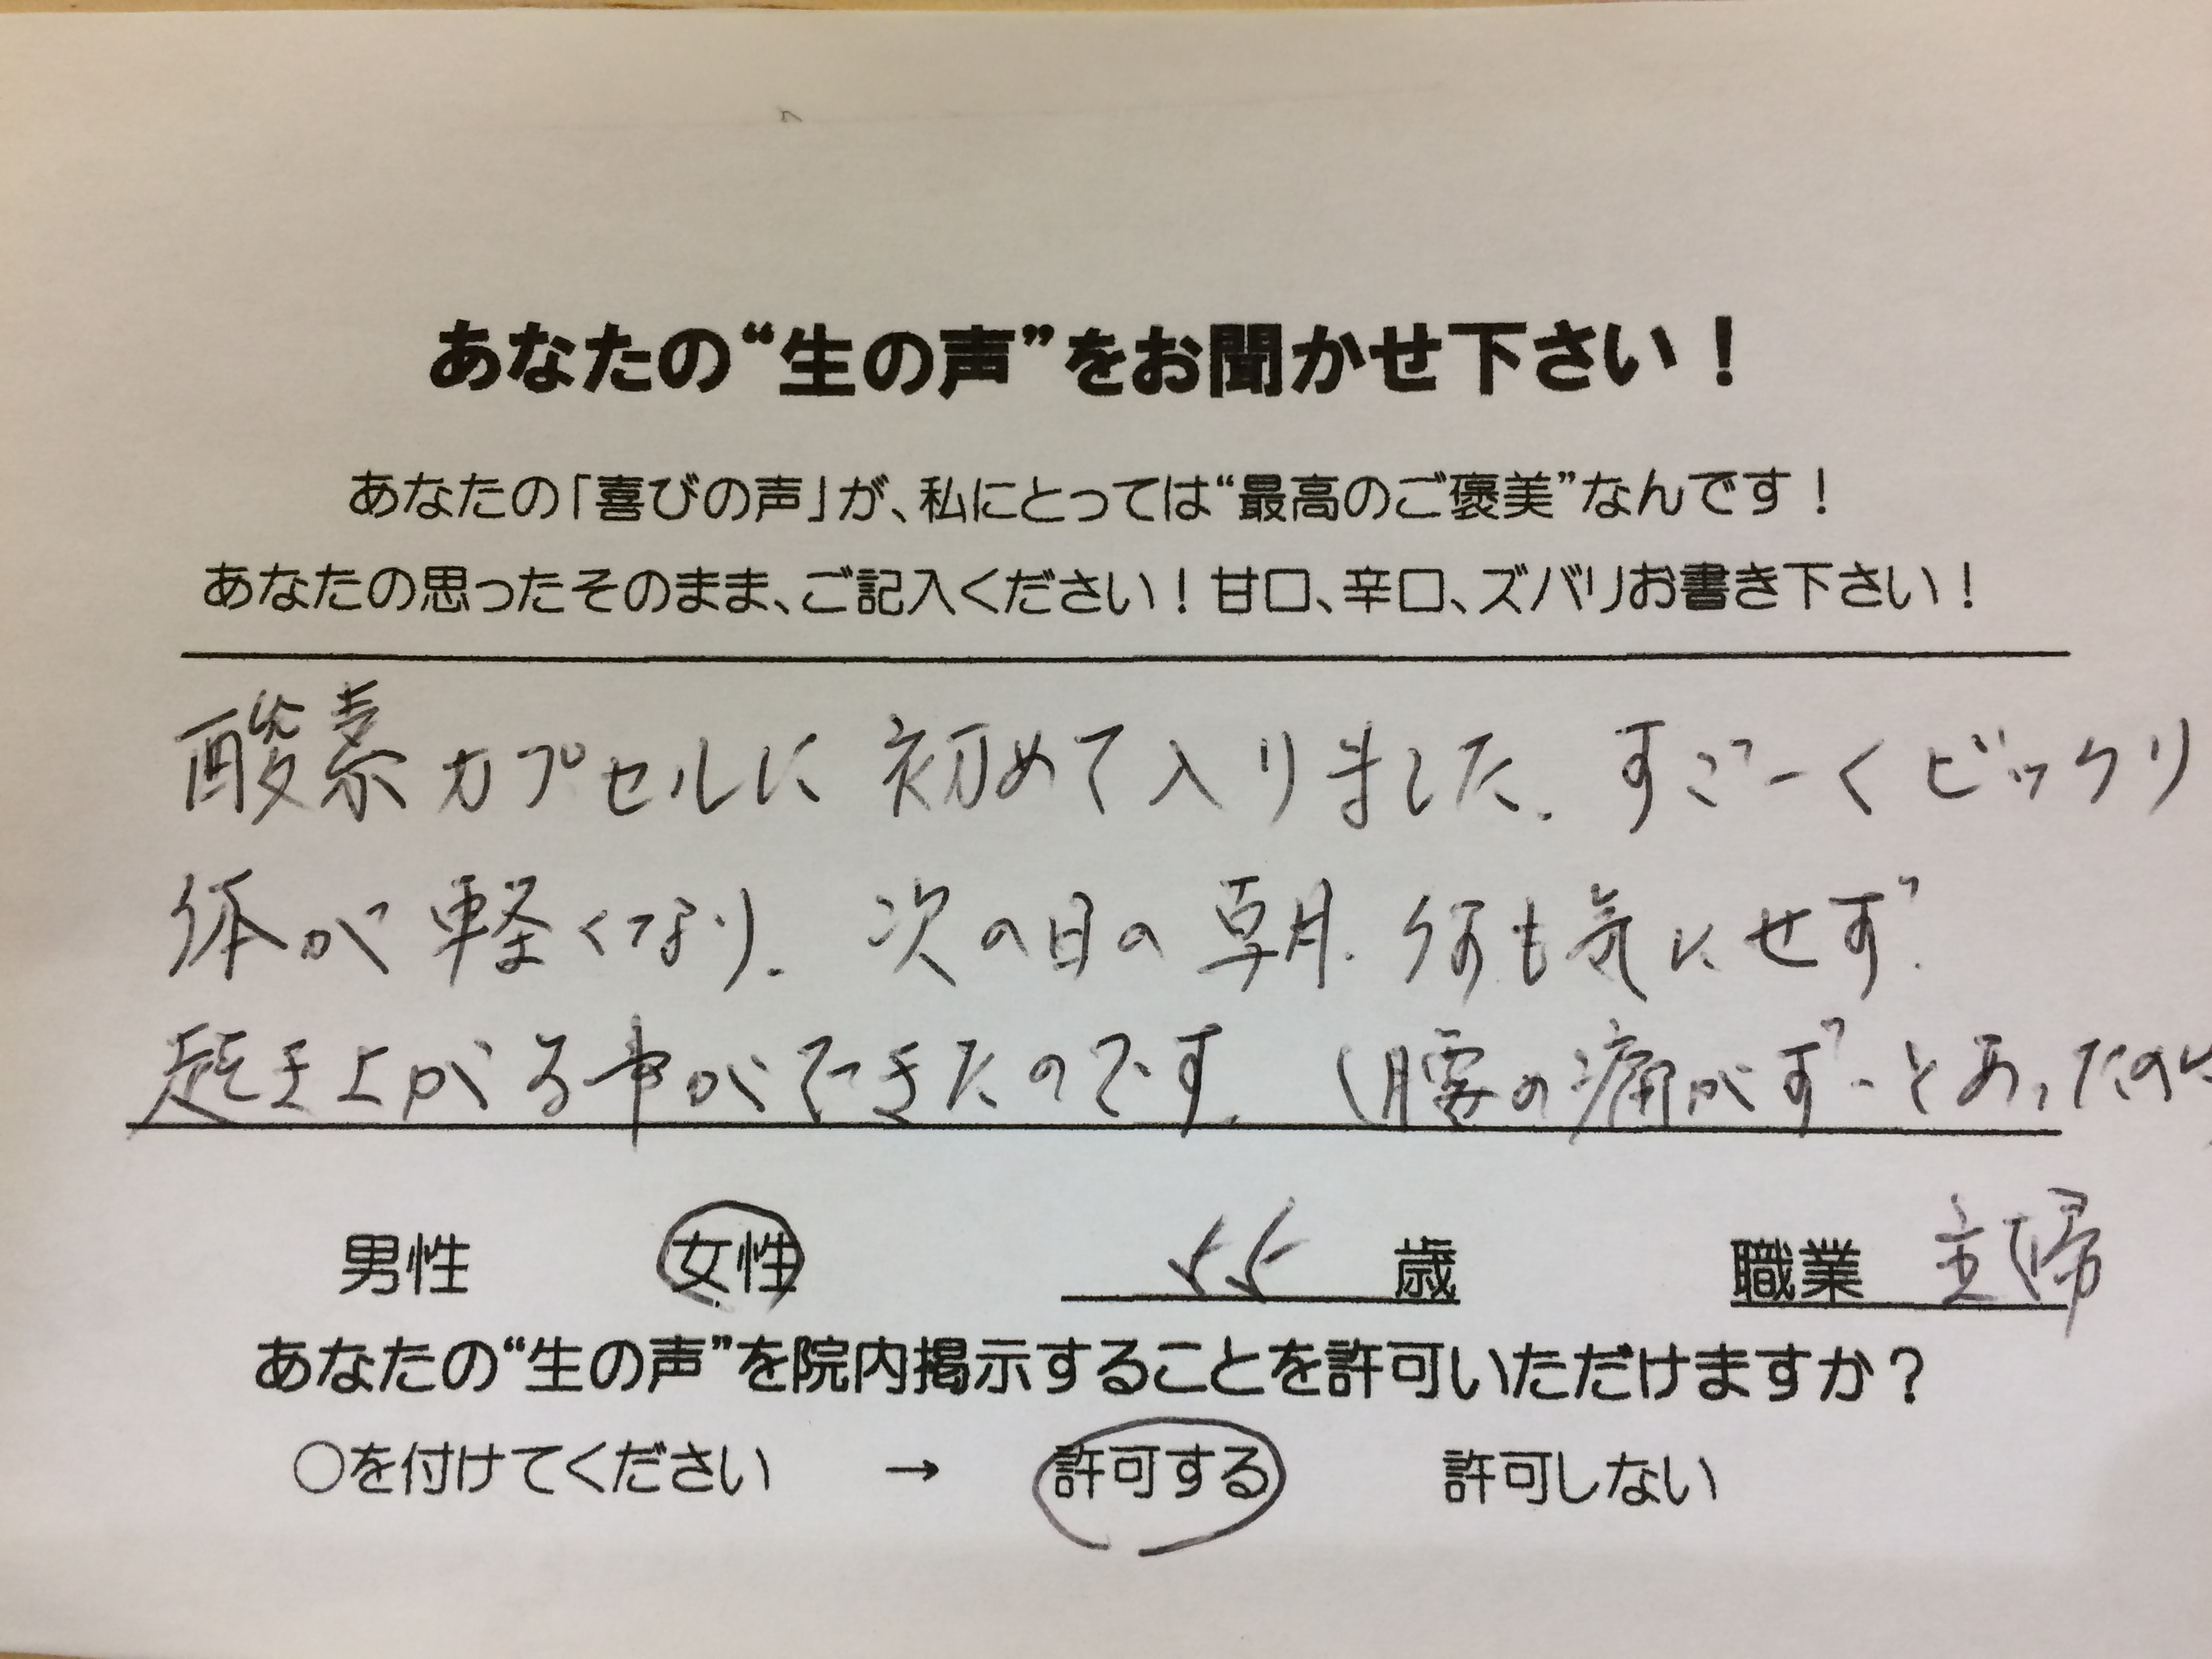 あなたの“生の声”をお聞かせ下さい！
あなたの「喜びの声」が、私にとっては“最高のご褒美”なんです！
あなたの思ったそのまま、ご記入ください！甘口、辛口、ズバリお書き下さい！
酸素カプセルに初めて入りました。すごーくビックリ
体が軽くなり。次の日の朝。何も気にせず。
起き上がる事ができたのです。(腰の痛がずーとあったのに
男性 女性 55 歳 職業 主婦
あなたの“生の声”を院内掲示することを許可いただけますか？
○を付けてください → 許可する 許可しない